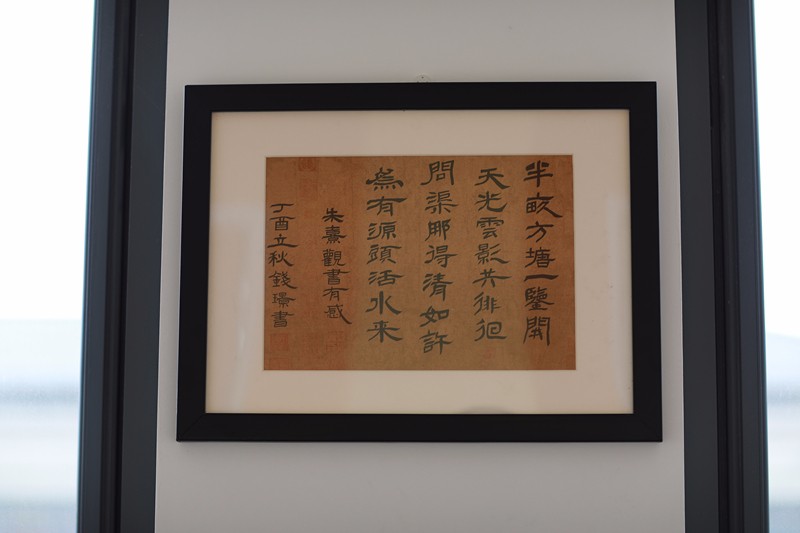 半畝方塘一鑒開
天光雲影共徘徊
問渠那得清如許
為有源頭活水来
朱熹觀書有感
丁酉立秋錢璟書